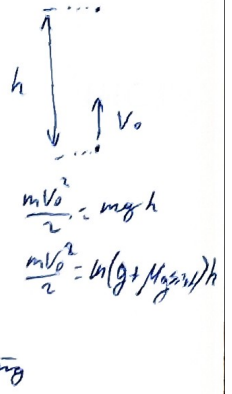 h
V₀
mV₀²/2 = mgh
mV₀²/2 = m(g+μg
)h
mg